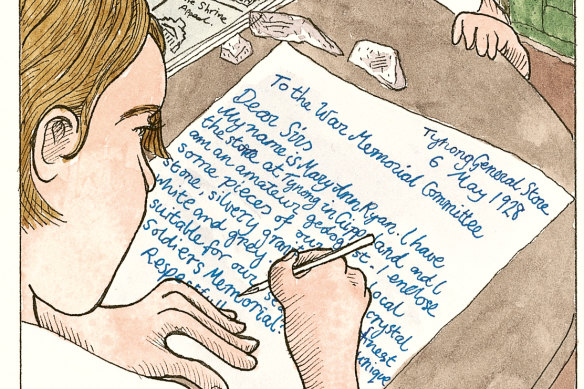 he Shrine
Appeal
Tynong General Store
6 May 1928
To the War Memorial Committee
Dear Sirs
My name is Mary Ann Ryan. I have
the store at Tynong in Gippsland and I
am an amateur geologist. I enclose
some pieces of our ocal
stone silvery gran crystal
white and grey finest
suitable for our unique
soldiers Memorial.
Respectfull